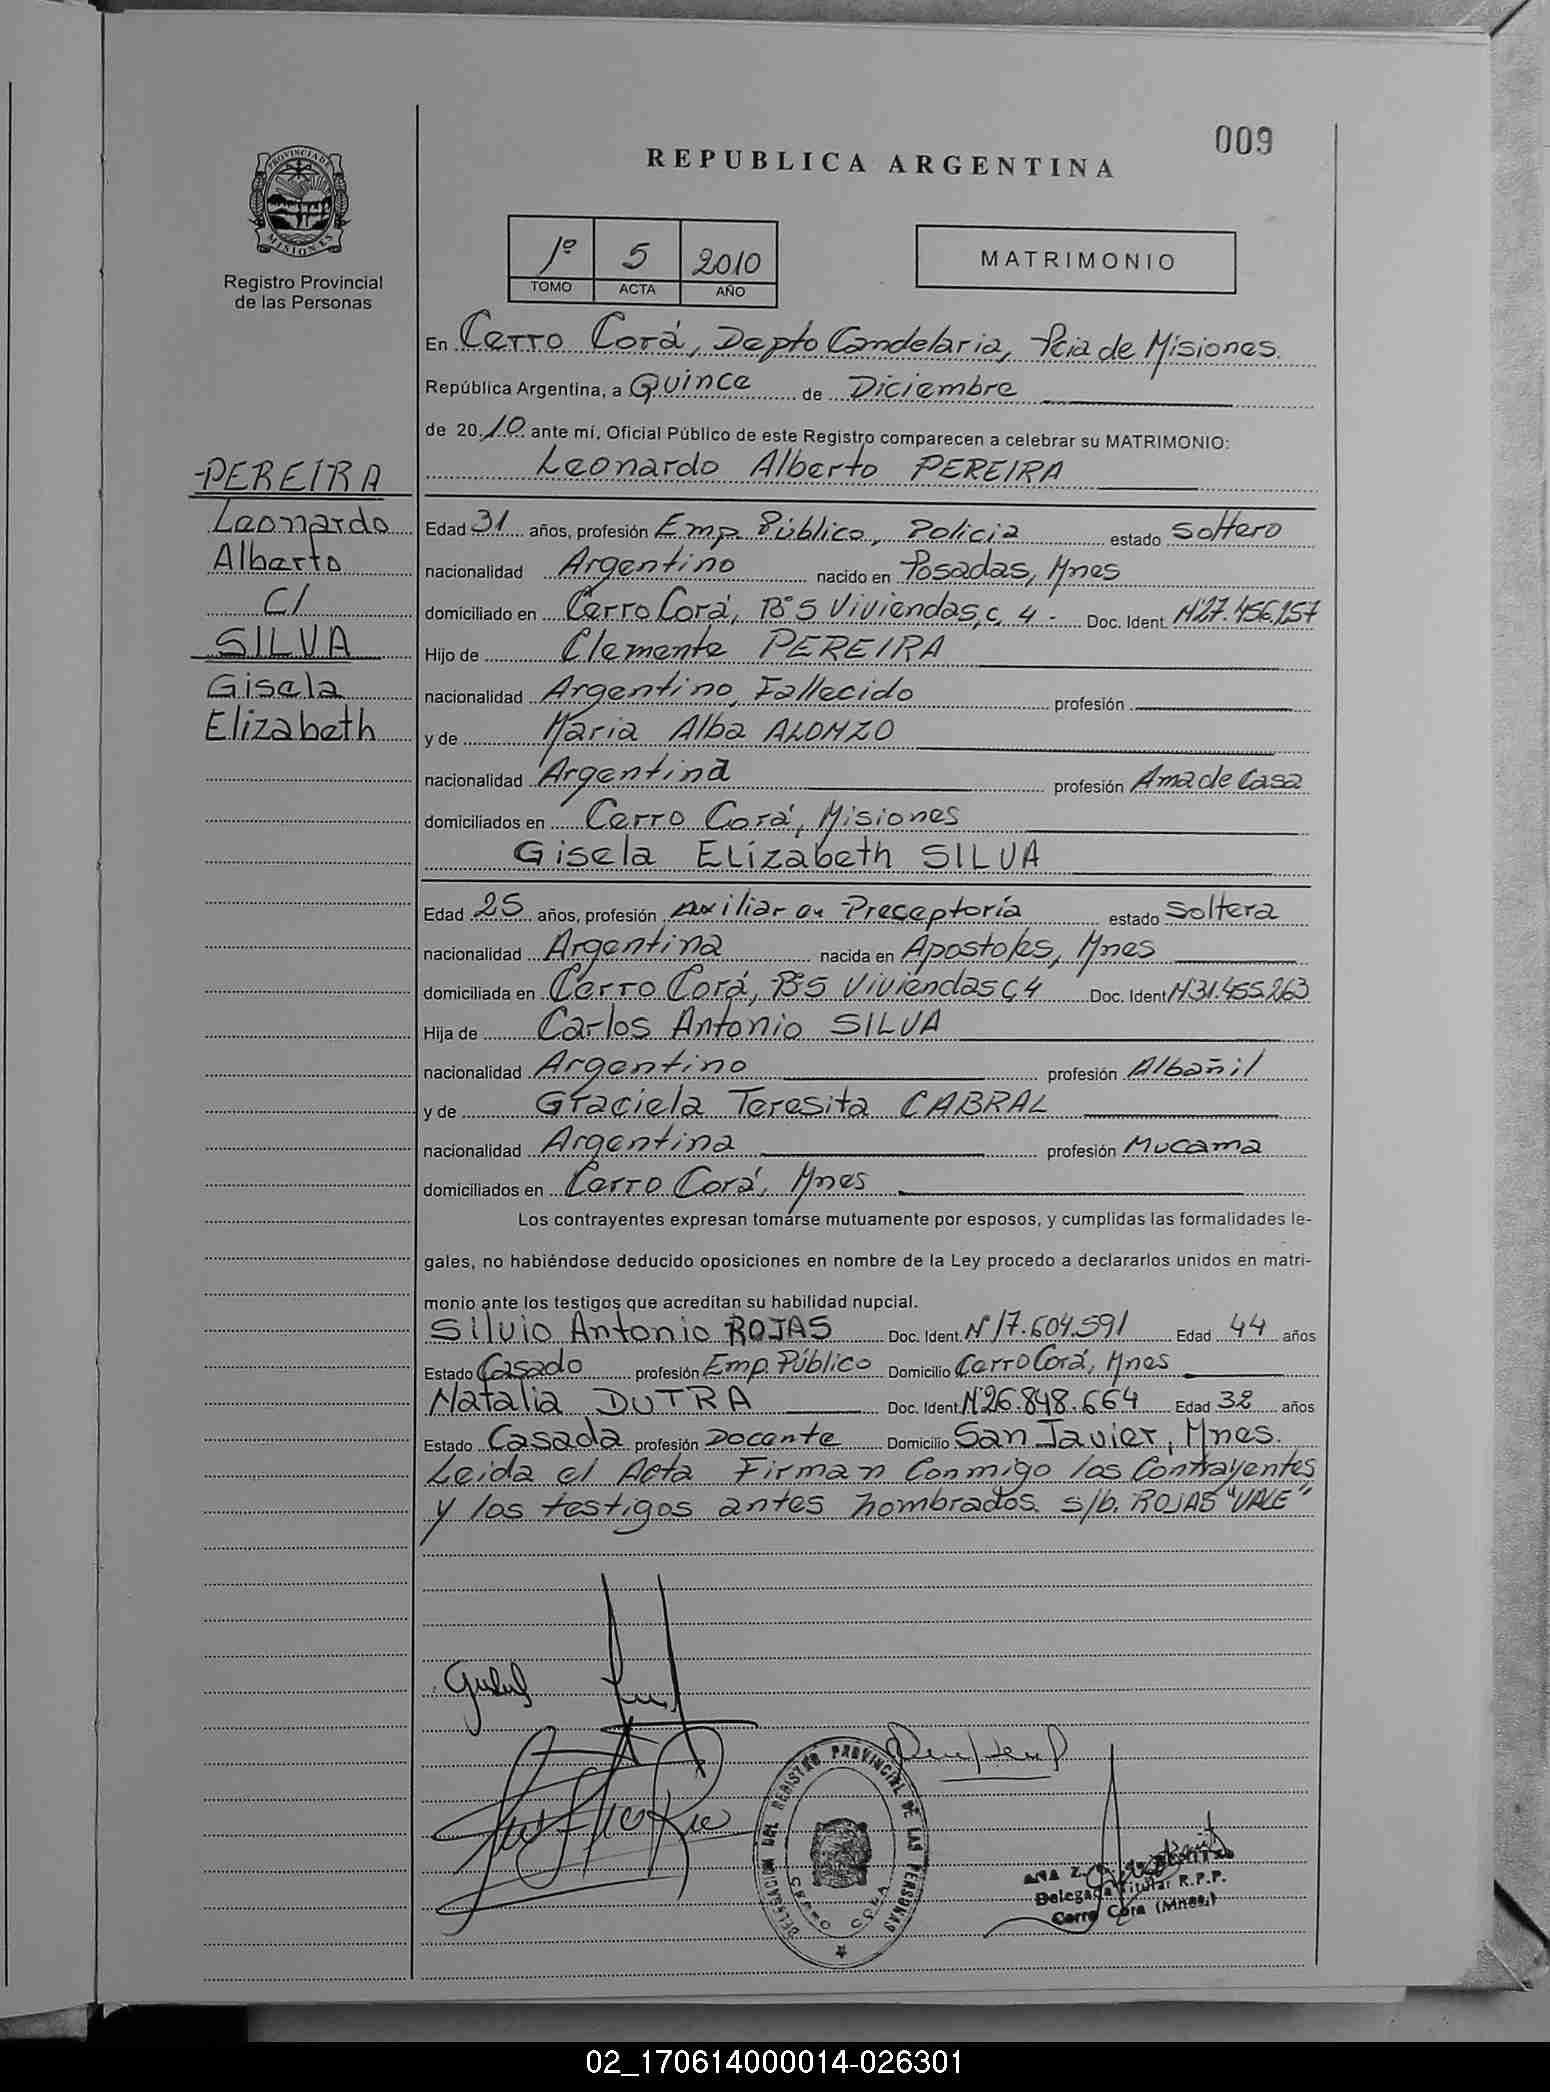 009
REPUBLICA ARGENTINA
PROVINCIA DE MISIONES
Registro Provincial
de las Personas
1º 5 2010
TOMO ACTA AÑO
MATRIMONIO
En Cerro Corá, Depto Candelaria, Pcia de Misiones.
República Argentina, a Quince de Diciembre
de 2010 ante mí, Oficial Público de este Registro comparecen a celebrar su MATRIMONIO:
Leonardo Alberto PEREIRA
PEREIRA
Leonardo
Alberto
C/
SILVA
Gisela
Elizabeth
Edad 31 años, profesión Emp. Público, Policia estado Soltero
nacionalidad Argentino nacido en Posadas, Mnes
domiciliado en Cerro Corá, Bº 5 Viviendas, c, 4 - Doc. Ident. Nº27.456.157
Hijo de Clemente PEREIRA
nacionalidad Argentino, Fallecido profesión
y de Maria Alba ALONZO
nacionalidad Argentina profesión Ama de Casa
domiciliados en Cerro Corá, Misiones
Gisela Elizabeth SILVA
Edad 25 años, profesión Auxiliar en Preceptoría estado Soltera
nacionalidad Argentina nacida en Apostoles, Mnes
domiciliada en Cerro Corá, Bº 5 Viviendas C, 4 Doc. Ident Nº31.455.263
Hija de Carlos Antonio SILVA
nacionalidad Argentino profesión Albañil
y de Graciela Teresita CABRAL
nacionalidad Argentina profesión Mucama
domiciliados en Cerro Corá, Mnes
Los contrayentes expresan tomarse mutuamente por esposos, y cumplidas las formalidades le-
gales, no habiéndose deducido oposiciones en nombre de la Ley procedo a declararlos unidos en matri-
monio ante los testigos que acreditan su habilidad nupcial.
Silvio Antonio ROJAS Doc. Ident. Nº 17.604.591 Edad 44 años
Estado Casado profesión Emp. Público Domicilio Cerro Corá, Mnes
Natalia DUTRA Doc. Ident. Nº26.848.664 Edad 32 años
Estado Casada profesión Docente Domicilio San Javier, Mnes.
Leida el Acta Firman Conmigo los Contrayentes
y los testigos antes nombrados. s/b. ROJAS "VALE"
DELEGACION DEL REGISTRO PROVINCIAL DE LAS PERSONAS
CERRO CORA
ANA Z.
Delegada Titular R.P.P.
Cerro Cora (Mnes.)
02_170614000014-026301